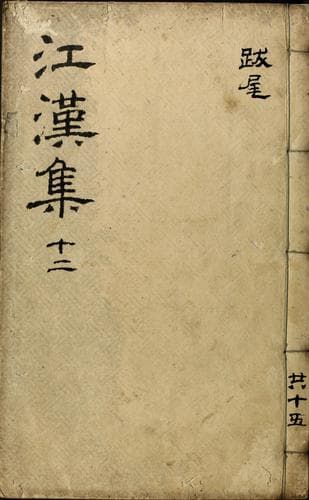 江漢集 十二
跋尾
共十五